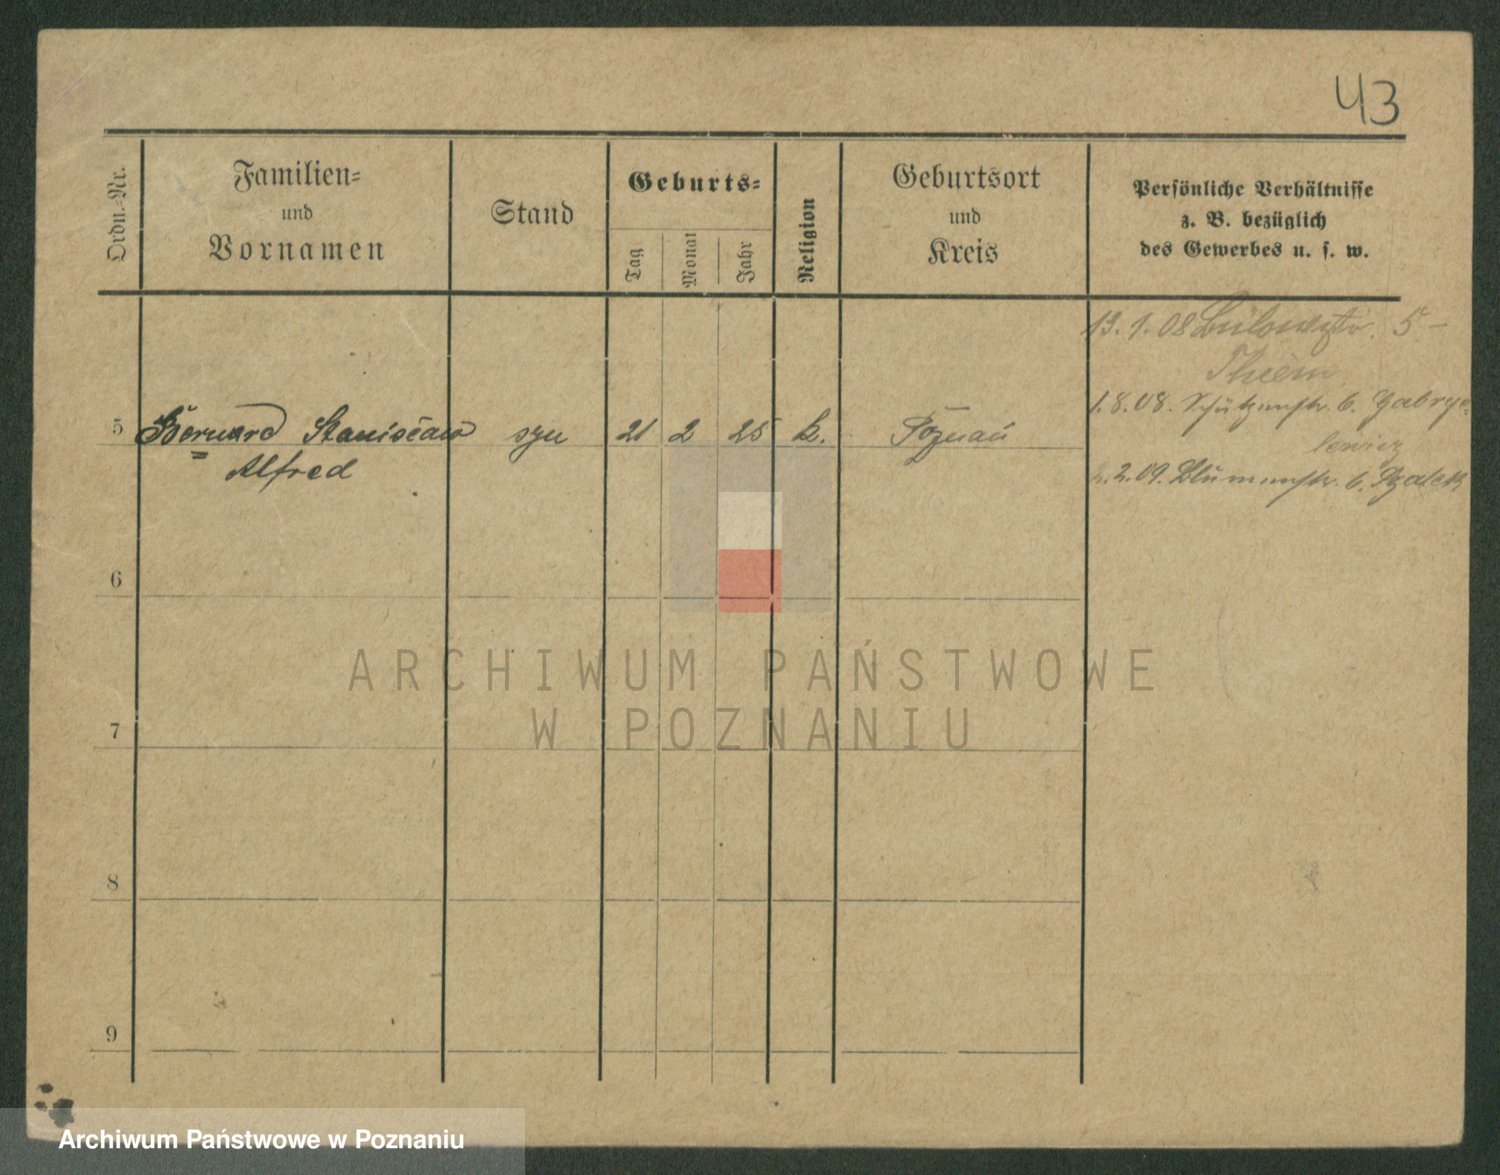 43
Ordn.-Nr.
Familien-
und
Vornamen
Stand
Geburts-
Tag
Monat
Jahr
Religion
Geburtsort
und
Kreis
Persönliche Verhältnisse
z. B. bezüglich
des Gewerbes u. s. w.
13.1.08 Bülowstr. 5 -
Thiem
1.8.08. Schützenstr. 6. Gabrye-
lewicz
5 Bernard Stanisław syn 21 2 25 k. Poznań
Alfred
2.09. Blumenstr. 6.
6
7
8
9
ARCHIWUM PAŃSTWOWE
W POZNANIU
Archiwum Państwowe w Poznaniu